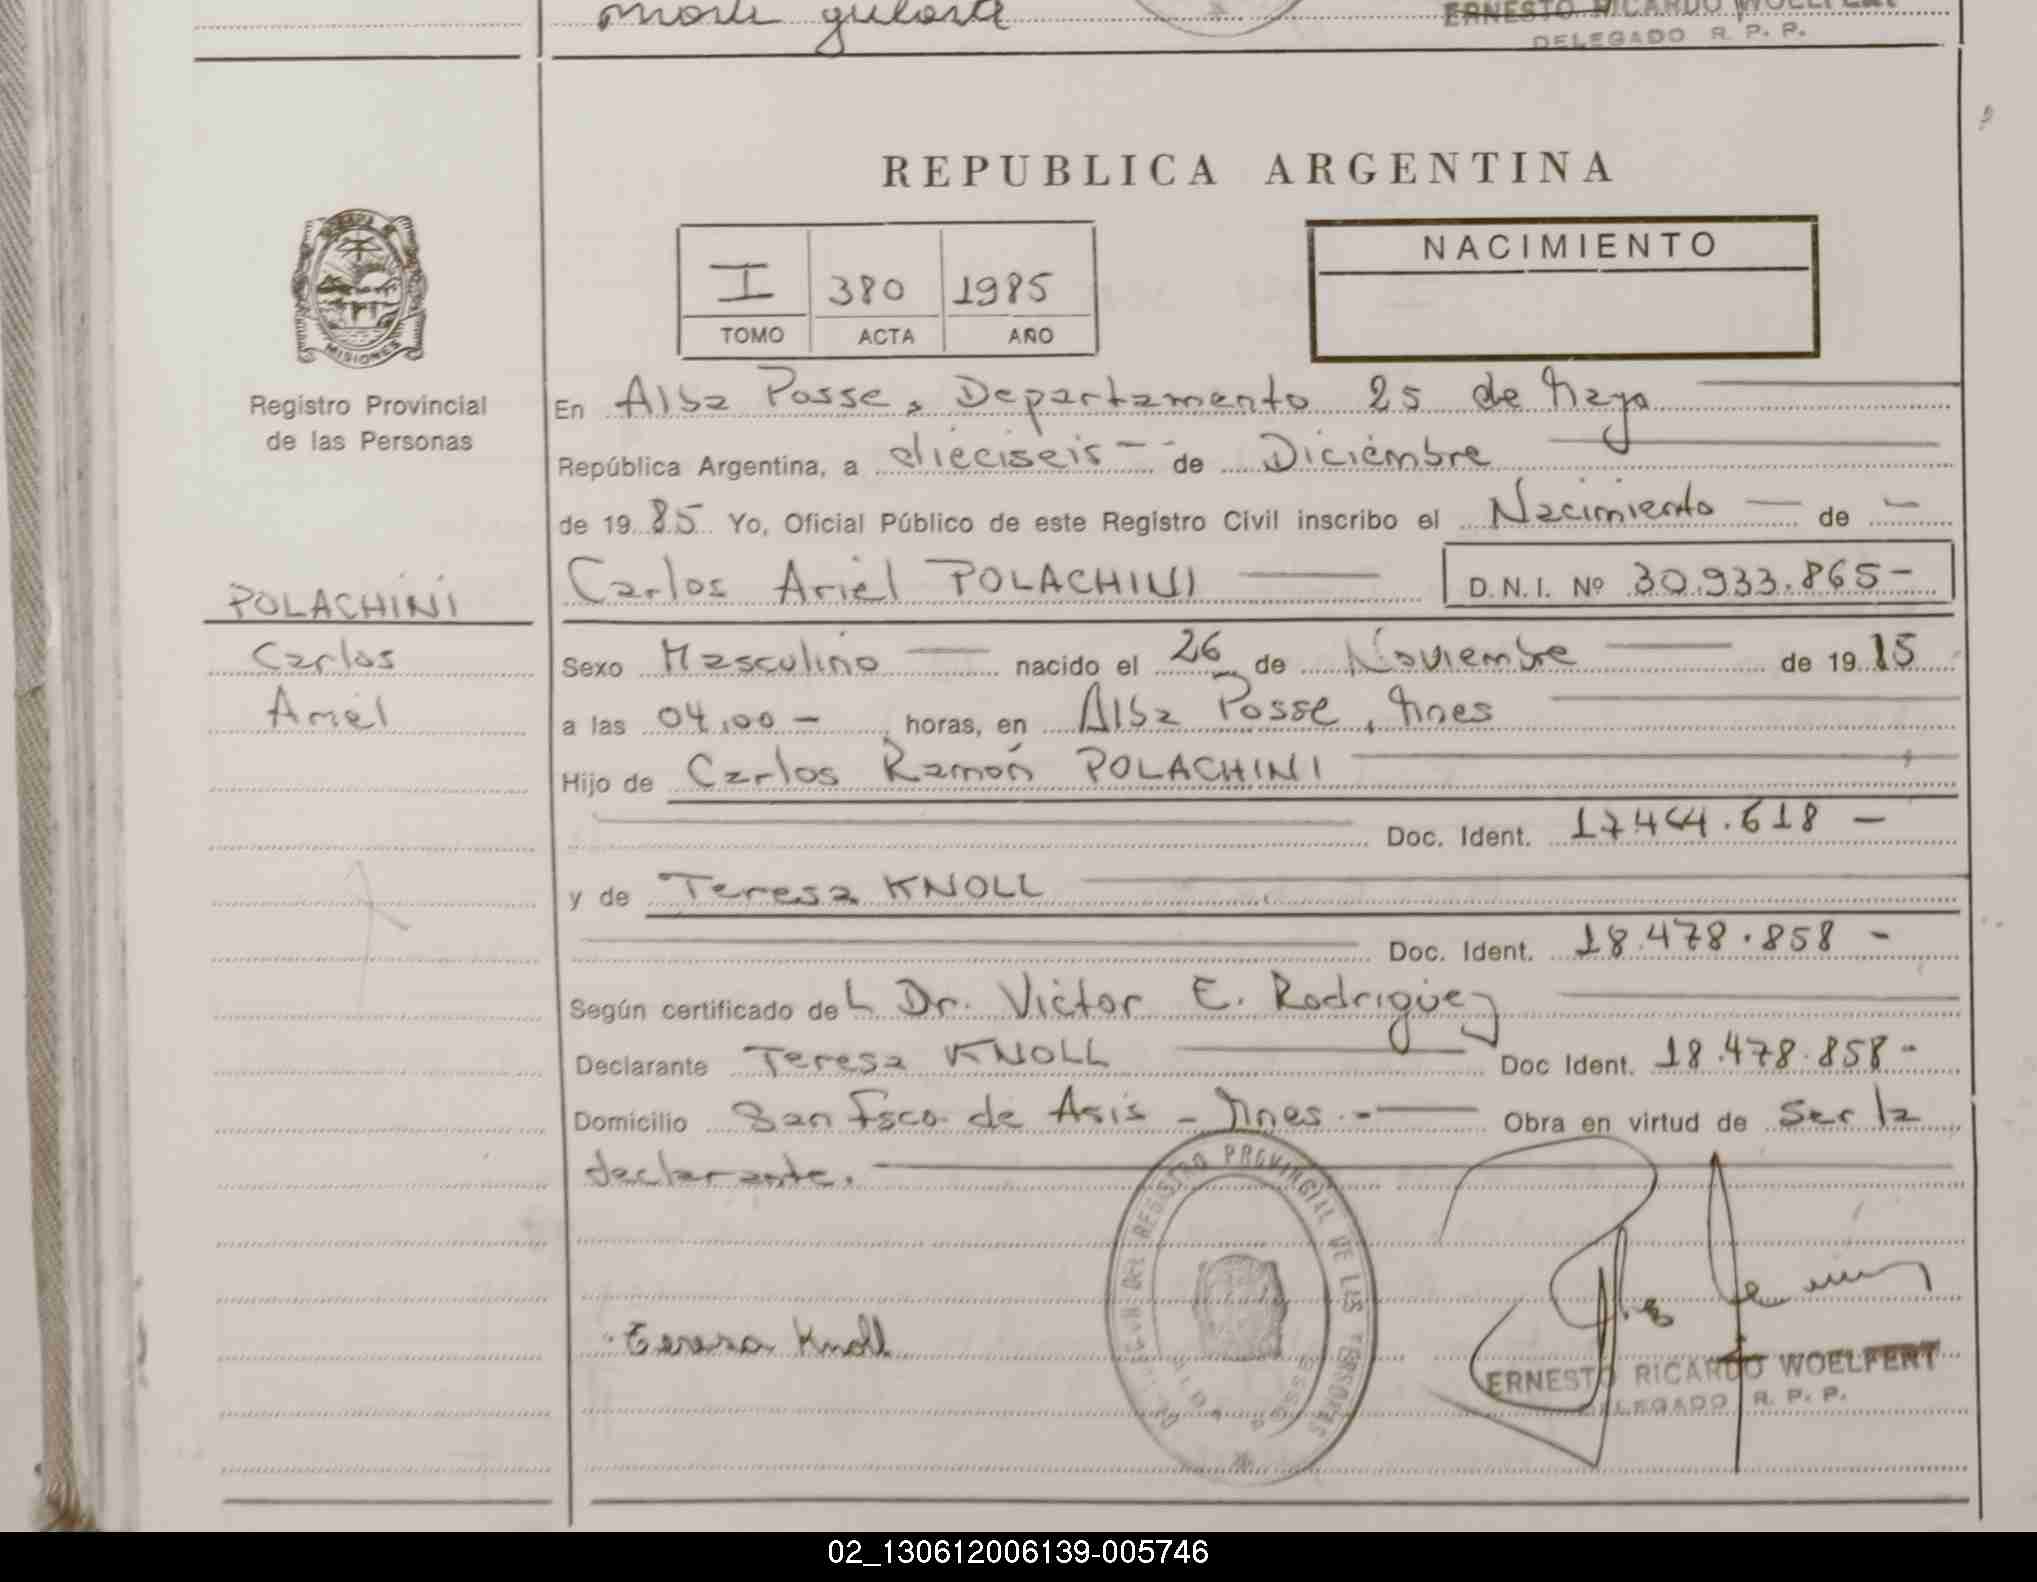 ERNESTO RICARDO WOELFERT
DELEGADO R. P. P.
REPUBLICA ARGENTINA
I 380 1985
TOMO ACTA AÑO
NACIMIENTO
MISIONES
Registro Provincial
de las Personas
POLACHINI
Carlos
Ariel
En Alba Posse, Departamento 25 de Mayo
República Argentina, a dieciseis - de Diciembre
de 19 85 Yo, Oficial Público de este Registro Civil inscribo el Nacimiento — de —
Carlos Ariel POLACHINI — D.N.I. Nº 30.933.865-
Sexo Masculino — nacido el 26 de Noviembre — de 19 85
a las 04,00 - horas, en Alba Posse, Mnes
Hijo de Carlos Ramón POLACHINI
Doc. Ident. 17.464.618 —
y de Teresa KNOLL
Doc. Ident. 18.478.858 -
Según certificado del Dr. Victor E. Rodriguez
Declarante Teresa KNOLL Doc Ident. 18.478.858-
Domicilio San Fsco. de Asis - Mnes.- Obra en virtud de Ser la
declarante.
REGISTRO PROVINCIAL DE LAS PERSONAS
Teresa Knoll
ERNESTO RICARDO WOELFERT
DELEGADO R. P. P.
02_130612006139-005746